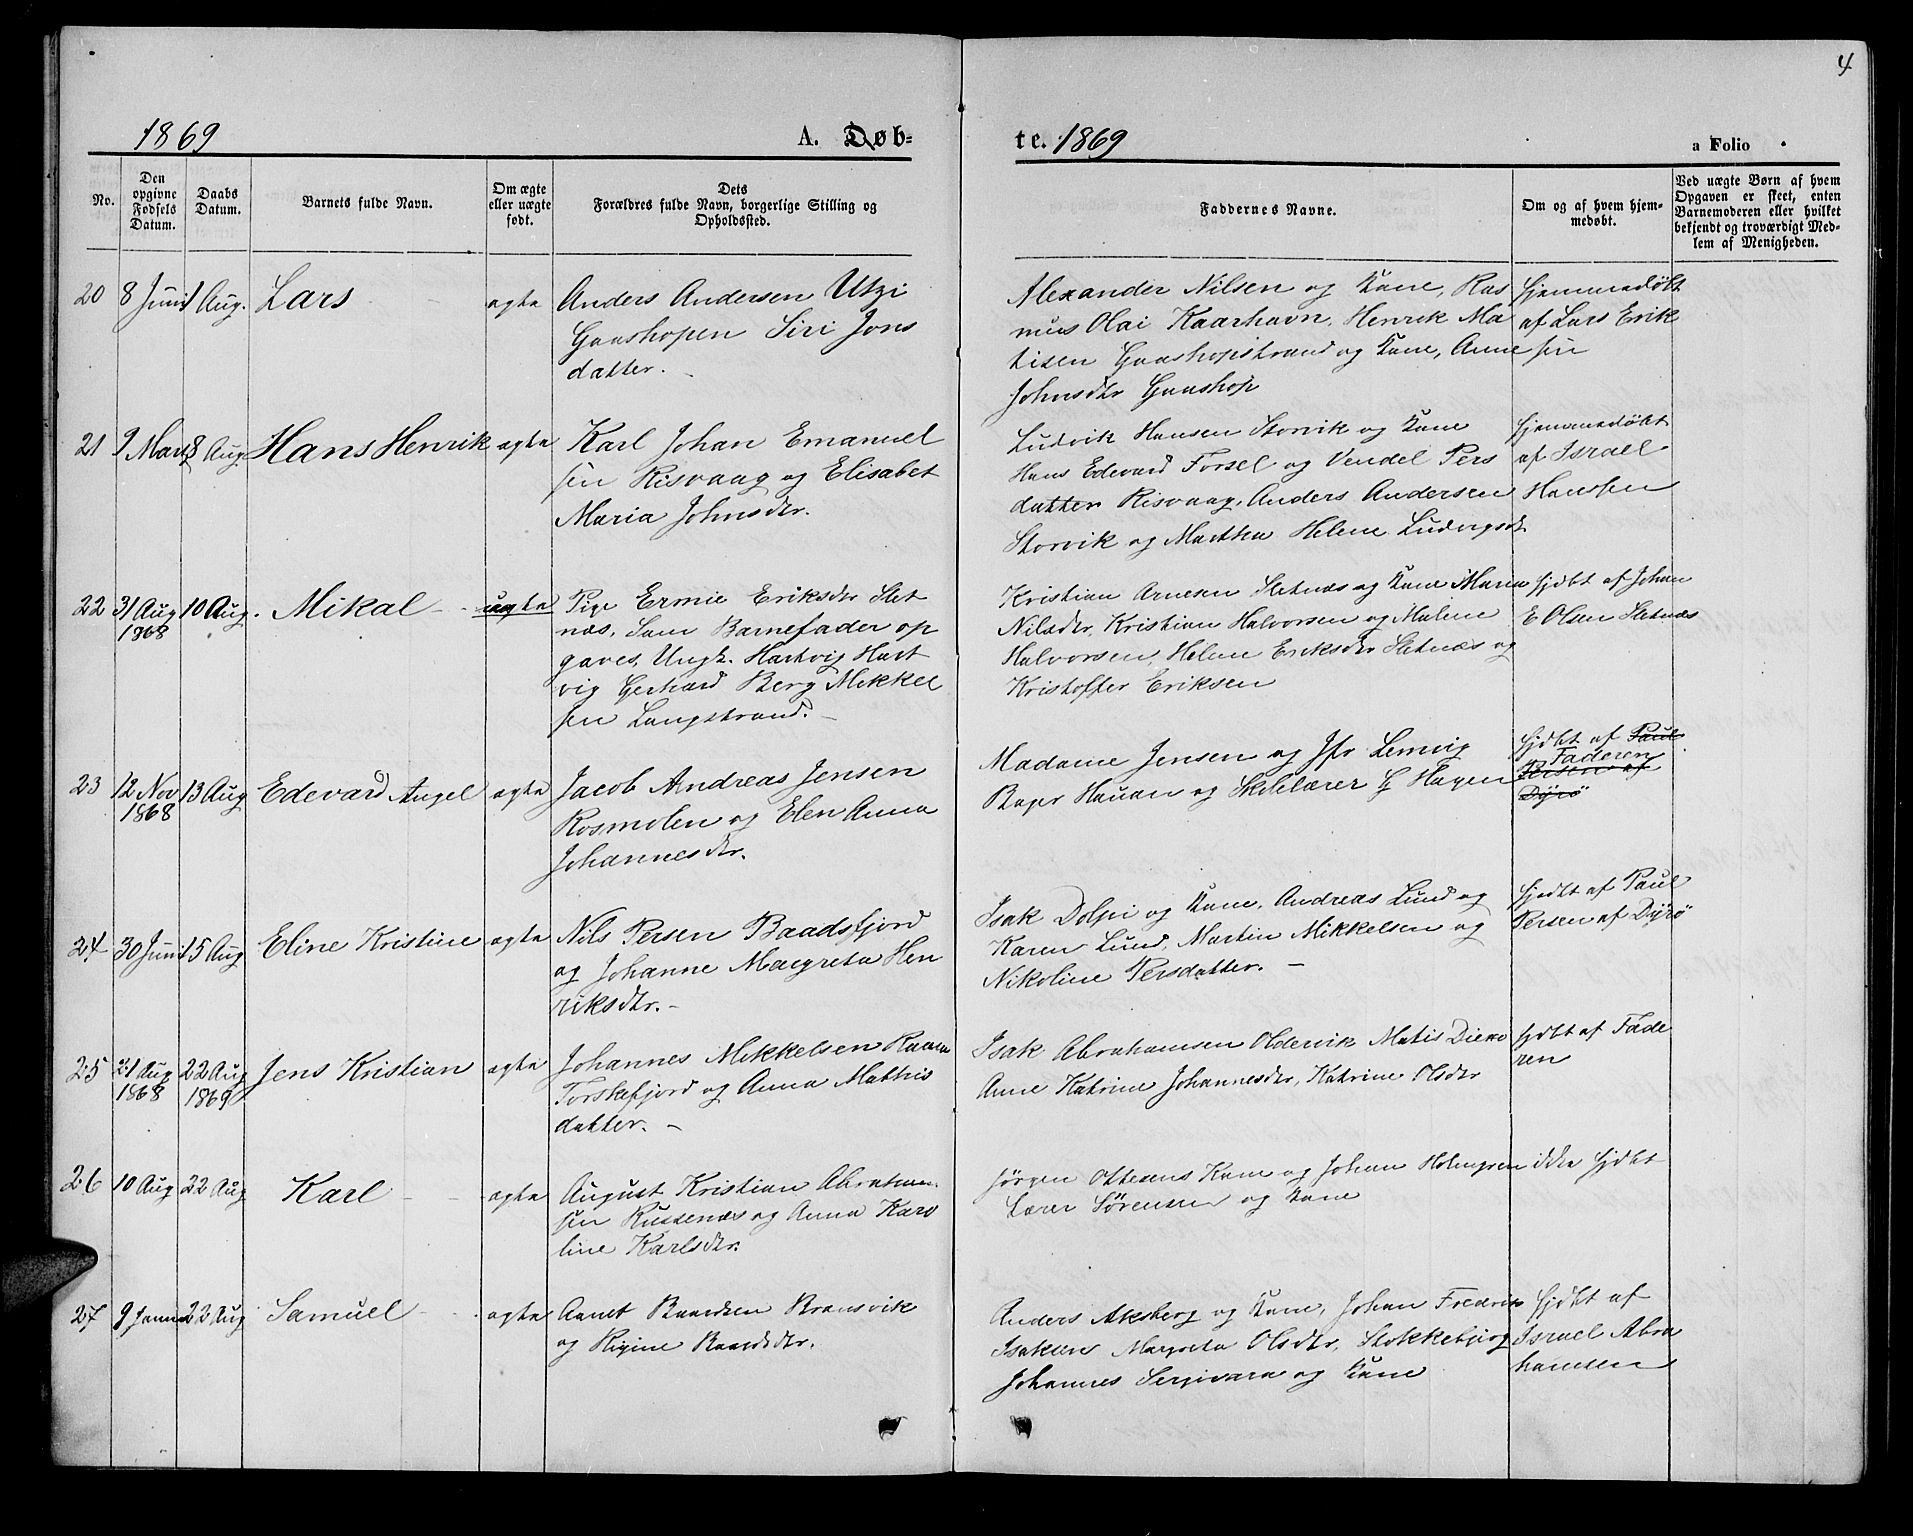 4
1869 A. Døb-
te. 1869 a Folio
No.
Den opgivne Fødsels Datum.
Daabs Datum.
Barnets fulde Navn.
Om ægte eller uægte født.
Dets
Forældres fulde Navn, borgerlige Stilling og
Opholdssted.
Faddernes Navne.
Om og af hvem hjem-
medøbt.
Ved uægte Børn af hvem
Opgaven er skeet, enten
Barnemoderen eller hvilket
bekjendt og troværdigt Med-
lem af Menigheden.
20 8 Juni 1 Aug. Lars ægte Anders Andersen Utzi
Gaashopen Siri Jons
datter.
Alexander Nilsen og Kone, Ras
mus Olai Kaarhavn, Henrik Ma
tisen Gaashopstrand og Kone, Anne
Johnsdtr Gaashop
hjemmedøbt
af Lars Erik
sen
21 9 Marts 8 Aug. Hans Henrik ægte Karl Johan Emanuel
sen Risvaag og Elisabet
Maria Johnsdtr.
Ludvik Hansen Storvik og Kone
Hans Edevard Forsel og Vendel Pers
datter Risvaag, Anders Andersen
Storvik og Martha Helene Ludvigsdt
hjemmedøbt
af Israel
Hanssen
22 31 Aug 1868 10 Aug. Mikal uægte Pige Ermie Eriksdtr Slet
næs. Som Barnefader op
gaves, Ungk. Hartvig Hart
vig Gerhard Berg Mikkel
sen Langstrand.
Kristian Arnesen Sletnæs og Kone Maren
Nilsdtr, Kristian Halvorsen og Malene
Halvorsen, Helene Eriksdtr Sletnæs og
Kristoffer Eriksen
hjdbt af Johan
E Olsen Sletnæs
23 12 Nov 1868 13 Aug Edevard Angel ægte Jacob Andreas Jensen
Rosmolen og Elen Anna
Johannesdtr.
Madame Jensen og Jfr Lemvig
Bager Hauan og Skolelærer G Hagen
hjdbt af Paul
Faderen
Persen af
Dyrø
24 30 Juni 15 Aug Eline Kristine ægte Nils Persen Baadsfjord
og Johanne Margreta Hen
riksdtr.
Isak Dolpi og Kone, Andreas Lund og
Karen Lund, Martin Mikkelsen og
Nikoline Persdatter.
hjedbt af Paul
Persen af Dyrø
25 21 Aug 1868 22 Aug 1869 Jens Kristian ægte Johannes Mikkelsen
Torskefjord og Anna Mathis
datter.
Isak Abrahamsen Oldervik Matis
Anne Katrine Johannesdtr, Katrine Olsdtr
hjdbt af Fade
ren
26 10 Aug 22 Aug Karl ægte August Kristian Abraham
sen Russenæs og Anna Karo
line Karlsdtr.
Jørgen Ottesens Kone og Johan Holmgren
Lærer Sørensen og Kone
ikke hjdbt
27 9 Janua 22 Aug Samuel ægte Baardsen Kransvik
og Regine Baardsdtr.
Anders Aksberg og Kone, Johan Fredrik
Isaksen Margreta Olsdtr, Stokkebjerg
Johannes Serjivara og Kone
hjdbt af
Israel Abra
hamsen